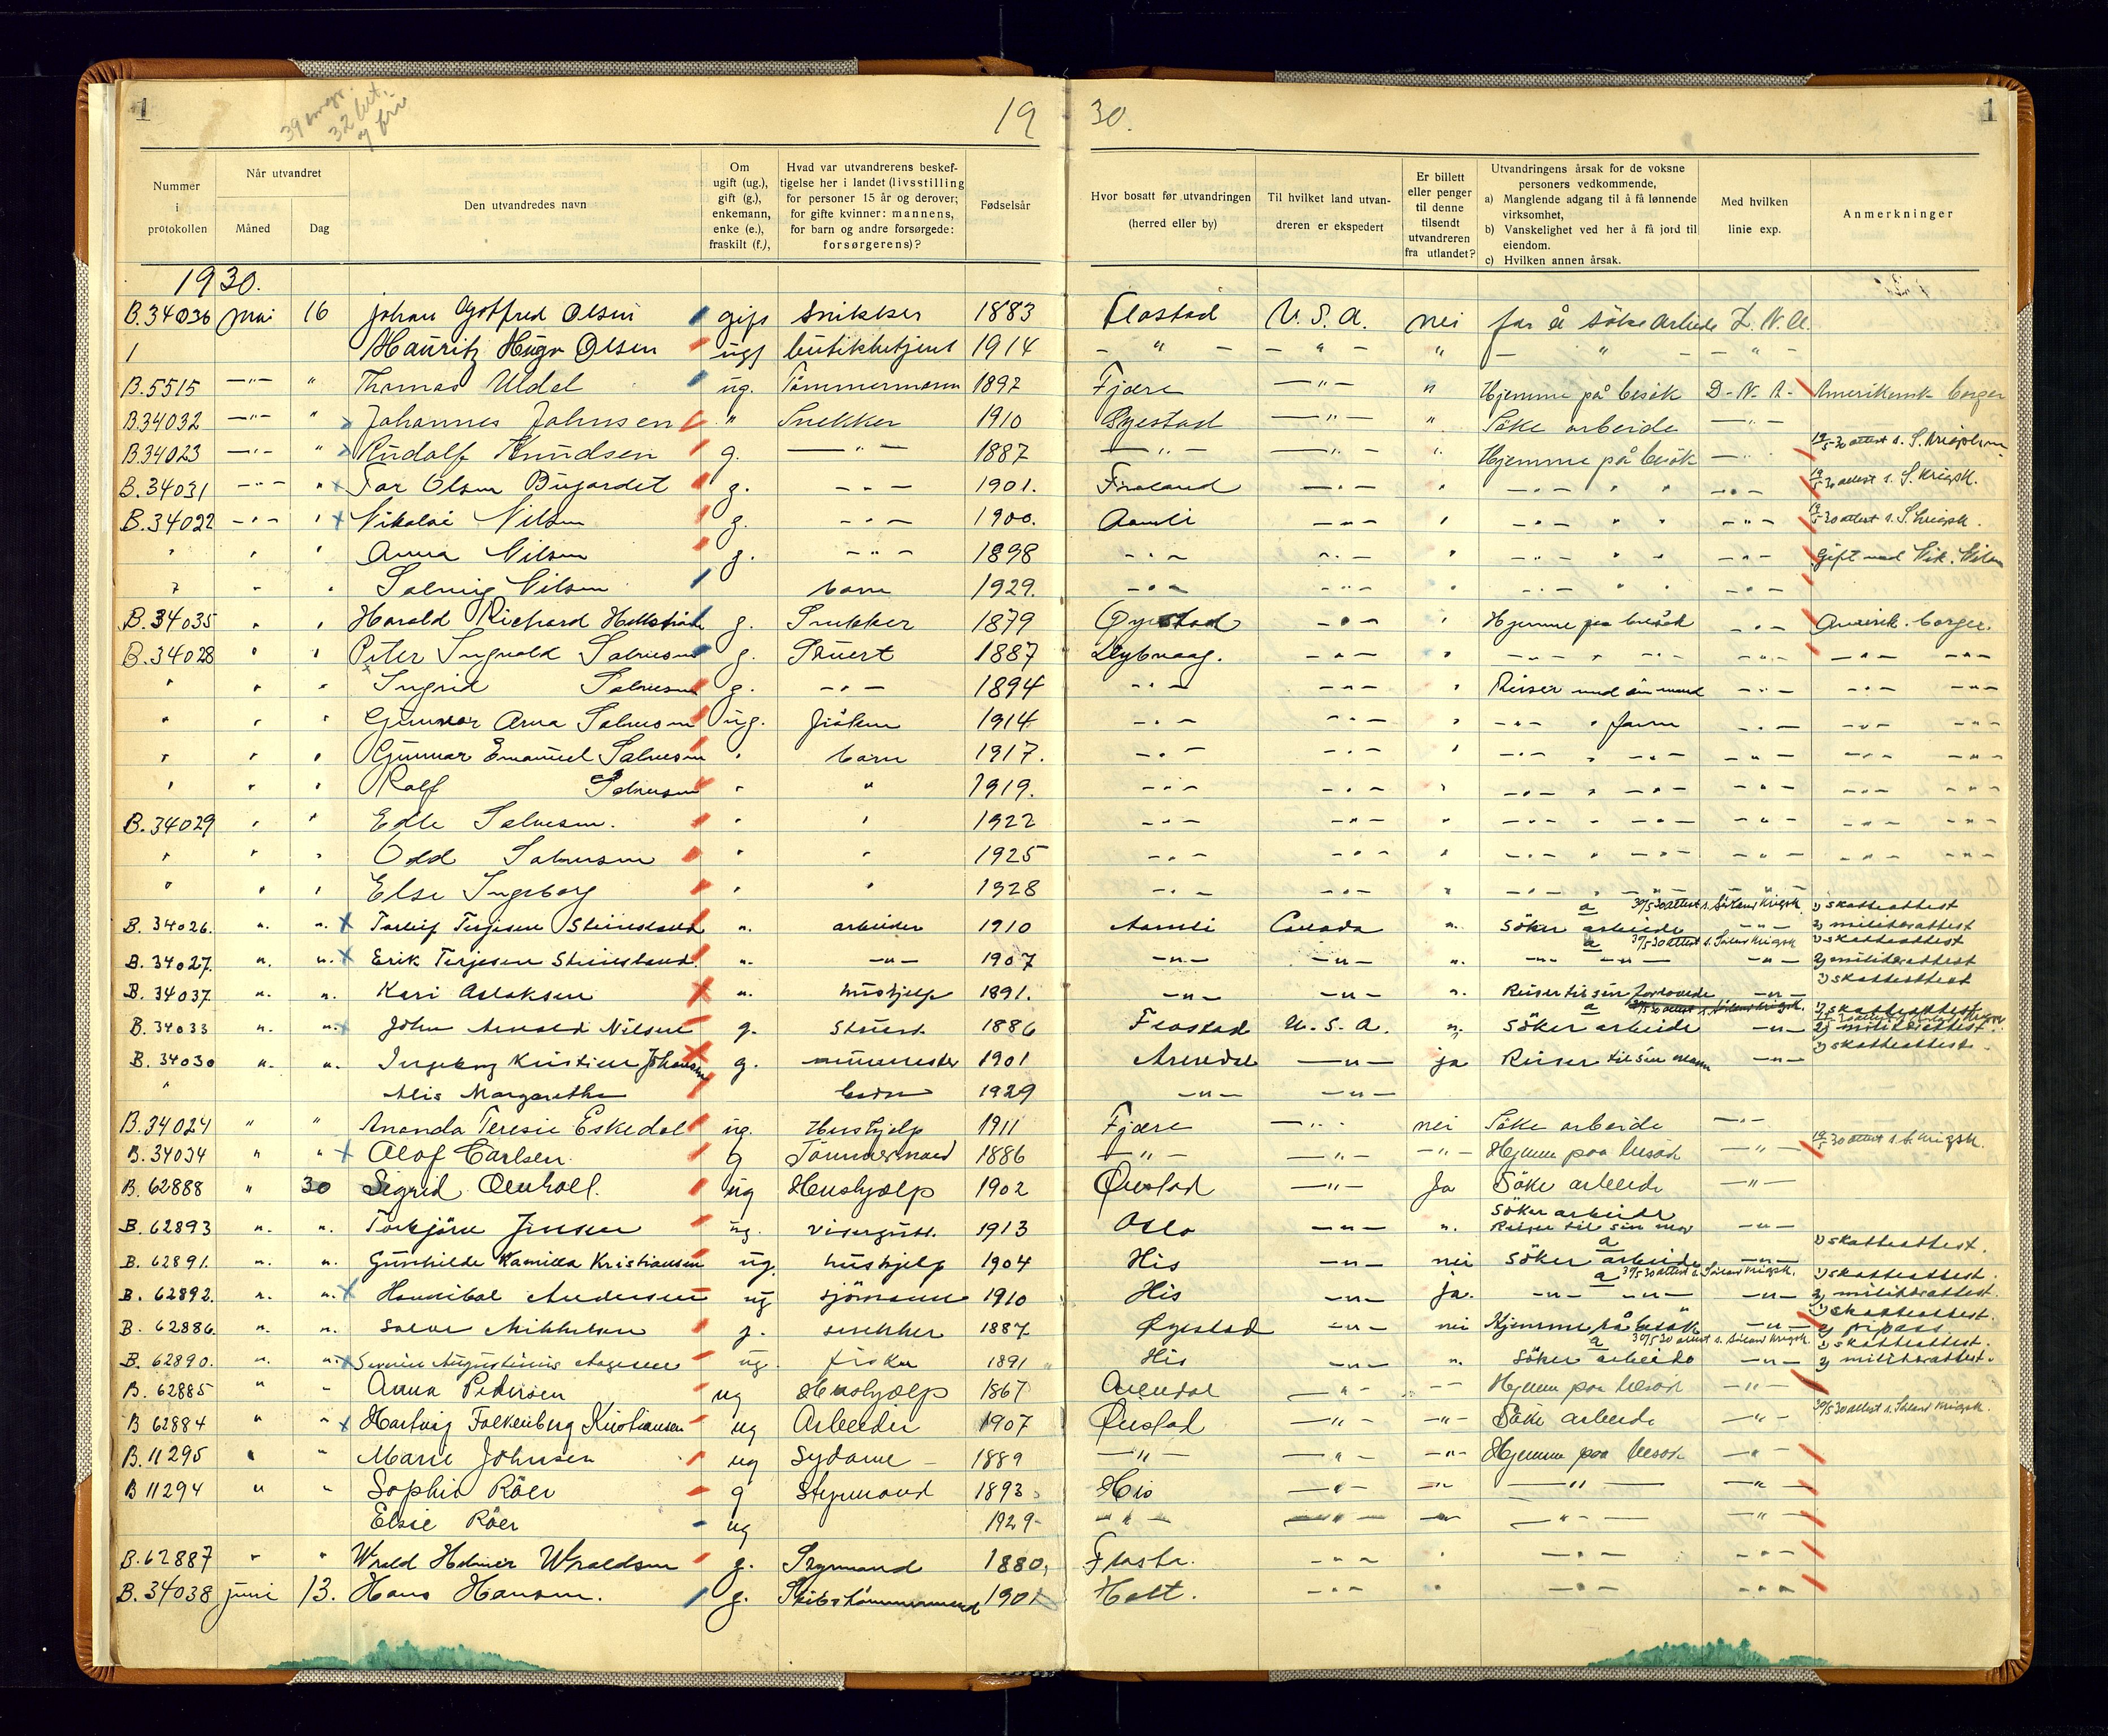 1
39 
32 bet.
7 fri
19
30.
1
Nummer i protokollen
Når utvandret
Måned
Dag
Den utvandredes navn
Om ugift (ug.), gift (g.), enkemann, enke (e.), fraskilt (f.),
Hvad var utvandrerens beskef-tigelse her i landet (livsstilling for personer 15 år og derover; for gifte kvinner: mannens, for barn og andre forsørgede: forsørgerens)?
Fødselsår
Hvor bosatt før utvandringen (herred eller by)
Til hvilket land utvan-dreren er ekspedert
Er billett eller penger til denne tilsendt utvandreren fra utlandet?
Utvandringens årsak for de voksne personers vedkommende,
a) Manglende adgang til å få lønnende virksomhet,
b) Vanskelighet ved her å få jord til eiendom.
c) Hvilken annen årsak.
Med hvilken linie exp.
Anmerkninger
1930.
B.34036 Mai 16 Johan Gotfred Olsen gift Snikker 1883 Flostad U.S.A. nei for å söke Arbeide D.N.A.
Mauritz Hugo Olsen ugf butikbetjent 1914 – " – – " – " – " – – " –
B.5515 –"– " Thomas Uldal ug. Tömmermann 1892 Fjære –"– " Hjemme på besök D.N.A. Amerikansk borger
B.34032 –"– " Johannes Johnsen " Snekker 1910 Øyestad –"– " Söke arbeide –"–
B.34023 –"– " Rudolf Knudsen g. –"– 1887 –"– –"– " Hjemme på besök –"– 19/5-30 attest s. S. Krigskom
B.34031 –"– " Tar Olsen Bugardet g. –"– 1901. Froland –"– " –"– " " –"– 19/5 30 attest s. S. Krigsk.
B.34022 –"– " Nikolai Nilsen g. –"– 1900. Aamli –"– " –"– " " –"– 19/5 30 attest s. S. Krigsk.
" " " Anna Nilsen g. –"– 1898 –"– –"– " –"– " " –"– Gift med Nik. Nilsen
" " " Solveig Nilsen barn 1929. –"– –"– –"– " " –"–
B.34035 " " Harald Richard g. Snekker 1879 Øyestad –"– " Hjemme paa besök –"– Amerik. borger.
B.34028 " " Peter Ingvald Salvesen g. Stuert 1887 Dybvaag. –"– " –"– " –"– –"– –"– –"–
" " " Ingrid Salvesen g. –"– 1894 –"– –"– " Reiser med sin mand –"– –"– –"–
" " " Gunvor Arna Salvesen ug. fröken 1914 –"– –"– " –"– " farm –"– –"– –"–
" " " Gunnar Emanuel Salvesen " barn 1917. –"– –"– " –"– " –"– –"– –"– –"–
" " " Rolf Salvesen " " 1919. –"– –"– " –"– " –"– –"– –"– –"–
B.34029 " " Edle Salvesen. " " 1922 –"– –"– " –"– " –"– –"– –"– –"–
" " " Odd Salvesen " " 1925 –"– –"– " –"– " –"– –"– –"– –"–
" " " Else Ingeborg " " 1928 –"– –"– " –"– " –"– –"–
B. 34026. " " Torleif Terjesen Stinesland " arbeider 1910 Aamli Canada " a söker arbeide 30/5 30 attest s. Sörland Krigsk. –"– 1) skatteattest 2) militærattest
B. 34027. " " Erik Terjesen Stinesland. " –"– 1907 –"– –"– " a –"– –"– 30/5 30 attest s. Sörland Krigsk –"– 1) skatteattest 2) militærattest
B. 34037. " " Kari Aslaksen " hushjelp 1891. –"– –"– " Reiser til sin forlovede –"– 1) skatteattest
B. 34033 " " John Arnold Nilsen g. Stuert 1886 Flostad U.S.A. " a söker arbeide –"– 1) skatteattest 2) militærattest.
B. 34030 " " Ingeborg Kristine Johansen g. murmester 1901 Arendal –"– ja Reiser til sin mann –"– 1) skatteattest.
" Alis Margarethe barn 1929 –"– –"–
B.34024 " " Ananda Teresie Eskedal ug. Hushjelp 1911 Fjære –"– nei Söke arbeide –"–
B.34034 " " Olof Carlsen g Tömmermand 1886 –"– –"– –"– Hjemme paa besök –"– 19/5 30 attest s. S. Krigsk.
B. 62888 " 30 Sigrid ug Hushjælp 1902 Øiestad –"– Ja Söke arbeide –"–
B. 62893 " " Torbjörn Jensen ug. visergutt. 1913 Oslo –"– " Söker arbeide Reiser til sin mor –"–
B. 62891. " " Gunhilde Kamilla Kristiansen ug. hushjelp 1904 His –"– nei a söker arbeide –"– 1) skatteattest.
B. 62892. " " Hannibal Andersen ug sjömann 1910 His –"– ja. a –"– –"– 30/5 30 attest s. Sörland Krigsk. –"– 1) skatteattest. 2) militærattest.
B. 62886. " " Salve Mikkelsen g. snekker 1887 Øyestad –"– nei Hjemme på besök –"– 1) skatteattest. 2) pass.
B. 62890. " " Severin Augustinius Aagesen ug. fisker 1891 His –"– " a söker arbeide 30/5 30 attest s. Sörland Krigsk. –"– 1) skatteattest. 2) militærattest.
B. 62885 " " Anna Pedersen ug Hushjælp 1867 Arendal –"– –"– Hjemme paa besök –"–
B 62884 " " Hartvig Falkenberg Kristiansen ug Arbeider 1907 Øiestad –"– –"– Söke arbeide –"– 30/5 30 attest s. Sörland Krigsk.
B. 11295 " " Marie Johnsen ug Sydame – 1889 –"– –"– –"– Hjemme paa besök –"–
B 11294 " " Sophie Röer g Styrmand 1893 His –"– –"– –"– –"–
Elsie Röer ug 1929 –"– –"– –"– –"– –"–
B.62887 " " Wrold Helmer Wroldsen g. Styrmand 1880, Flosta. –"– " –"– –"–
B.34038 juni 13. Hans Hansen. g. Skibstömmermand 1901 Holt. –"– " –"– –"–